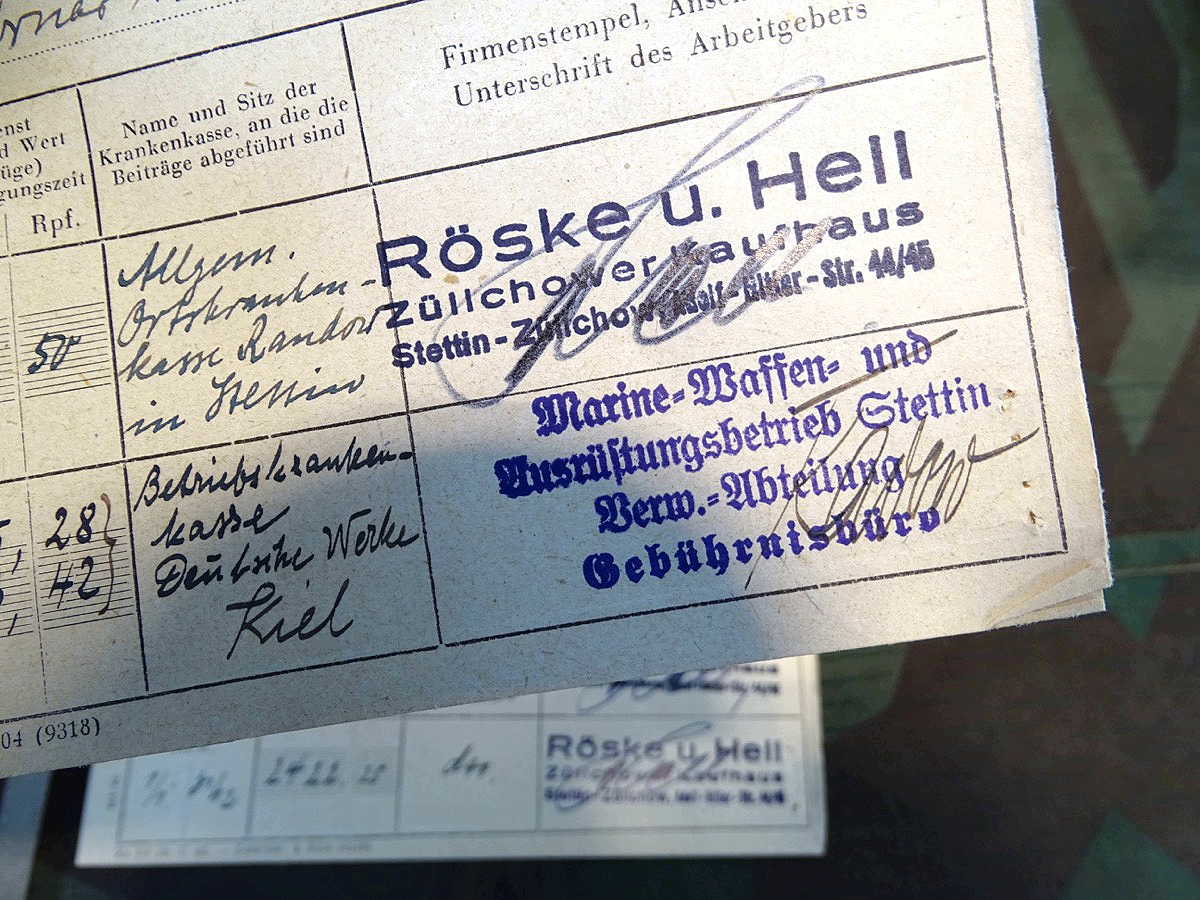 Firmenstempel,
Unterschrift des Arbeitgebers
Name und Sitz der
Krankenkasse, an die die
Beiträge abgeführt sind
enst
d Wert
üge)
gungszeit
Rpf.
50
Allgem.
Ortskranken-
kasse Randow
in Stettin
Röske u. Hell
Züllchower Kaufhaus
Stettin-Züllchow, Adolf-Hitler-Str. 44/45
28
42
Betriebskranken-
kasse
Deutsche Werke
Kiel
Marine-Waffen- und
Ausrüstungsbetrieb Stettin
Verw.-Abteilung
Gebührnisbüro
04 (9318)
Röske u. Hell
Züllchower Kaufhaus